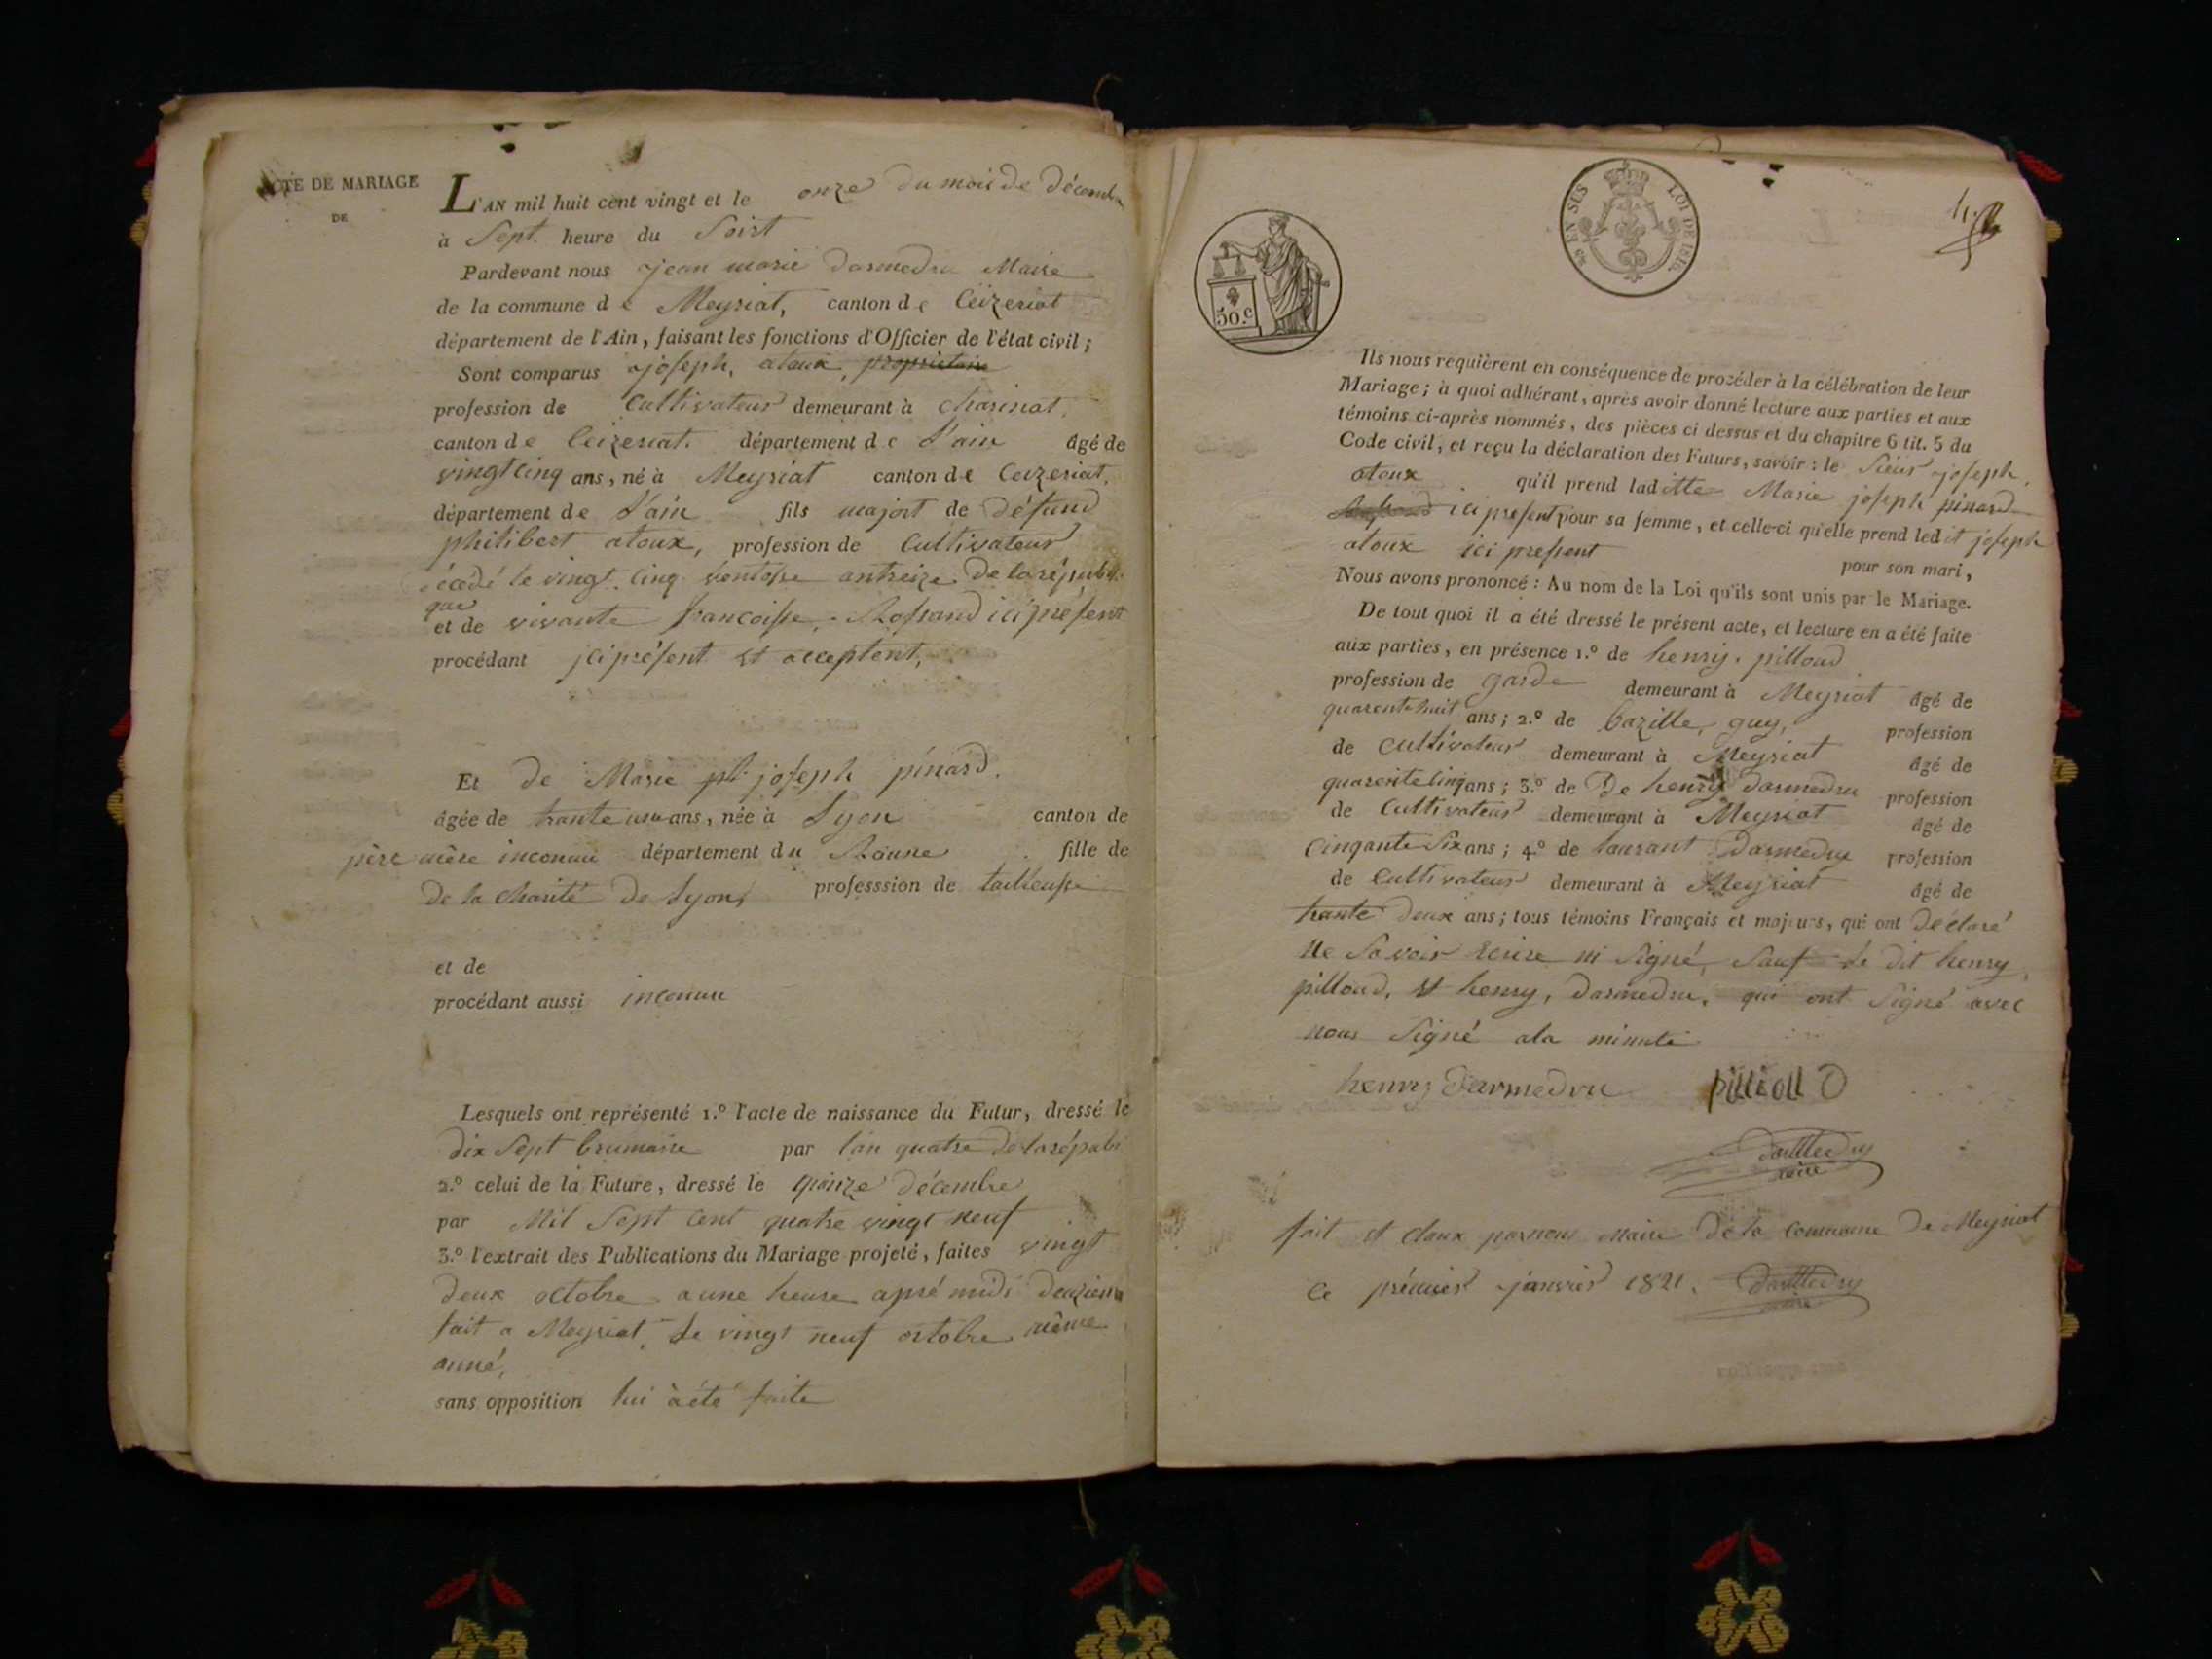 ACTE DE MARIAGE
DE
L'AN mil huit cent vingt et le onze du mois de décembre
à Sept heure du Soirt
Pardevant nous jean marie darmedru Maire
de la commune de Meyriat, canton de Ceizeriat
département de l'Ain, faisant les fonctions d'Officier de l'état civil;
Sont comparus joseph, atoux, proprietaire
profession de Cultivateur demeurant à charinat,
canton de Ceizeriat. département de L'ain âgé de
vingt cinq ans, né à Meyriat canton de Ceizeriat,
département de L'ain fils majort de défund
philibert atoux, profession de Cultivateur
décédé le vingt cinq ventosse antreize de larépubli
que
et de vivante francoisse, Rossand ici présent
procédant ici présent et acceptent,
Et de Marie joseph pinard.
âgée de trante une ans, née à Lyon canton de
père mère inconnu département du Rounne fille de
de la charité de Lyon, professsion de tailleusse
et de
procédant aussi inconnu
Lesquels ont représenté 1.° l'acte de naissance du Futur, dressé le
dix Sept brumaire par l'an quatre de larépubl
2.° celui de la Future, dressé le quinze décembre
par Mil Sept Cent quatre vingt neuf
3.° l'extrait des Publications du Mariage projeté, faites vingt
deux octobre a une heure apré midi deuzieme
fait a Meyriat, Le vingt neuf octobre même
anné,
sans opposition lui à été faite
50.c
EN SUS
LOI DE 1816.
Ils nous requièrent en conséquence de procéder à la célébration de leur
Mariage; à quoi adhérant, après avoir donné lecture aux parties et aux
témoins ci-après nommés, des pièces ci dessus et du chapitre 6 tit. 5 du
Code civil, et reçu la déclaration des Futurs, savoir: le Sieur joseph,
atoux qu'il prend laditte Marie joseph pinard
ici present pour sa femme, et celle-ci qu'elle prend ledit joseph
atoux ici present pour son mari,
Nous avons prononcé: Au nom de la Loi qu'ils sont unis par le Mariage.
De tout quoi il a été dressé le présent acte, et lecture en a été faite
aux parties, en présence 1.° de henry. pilloud
profession de garde demeurant à Meyriat âgé de
quarentehuit ans; 2.° de bazille, guy, profession
de cultivateur demeurant à Meyriat âgé de
quarentecinq ans; 3.° de De henry darmedru profession
de Cultivateur demeurant à Meyriat âgé de
Cinqante Six ans; 4.° de laurant Darmedru profession
de Cultivateur demeurant à Meyriat âgé de
trante deux ans; tous témoins Français et majeurs, qui ont déclaré
Ne Savoir Ecrire ni Signé, Sauf Le dit henry,
pilloud, et henry, darmedru, qui ont Signé avec
nous Signé ala minute
henry darmedru pillioud
darmedru
maire
fait et cloux parnous Maire de la Commune de Meyriat
Ce prémier janvier 1821. darmedru
maire